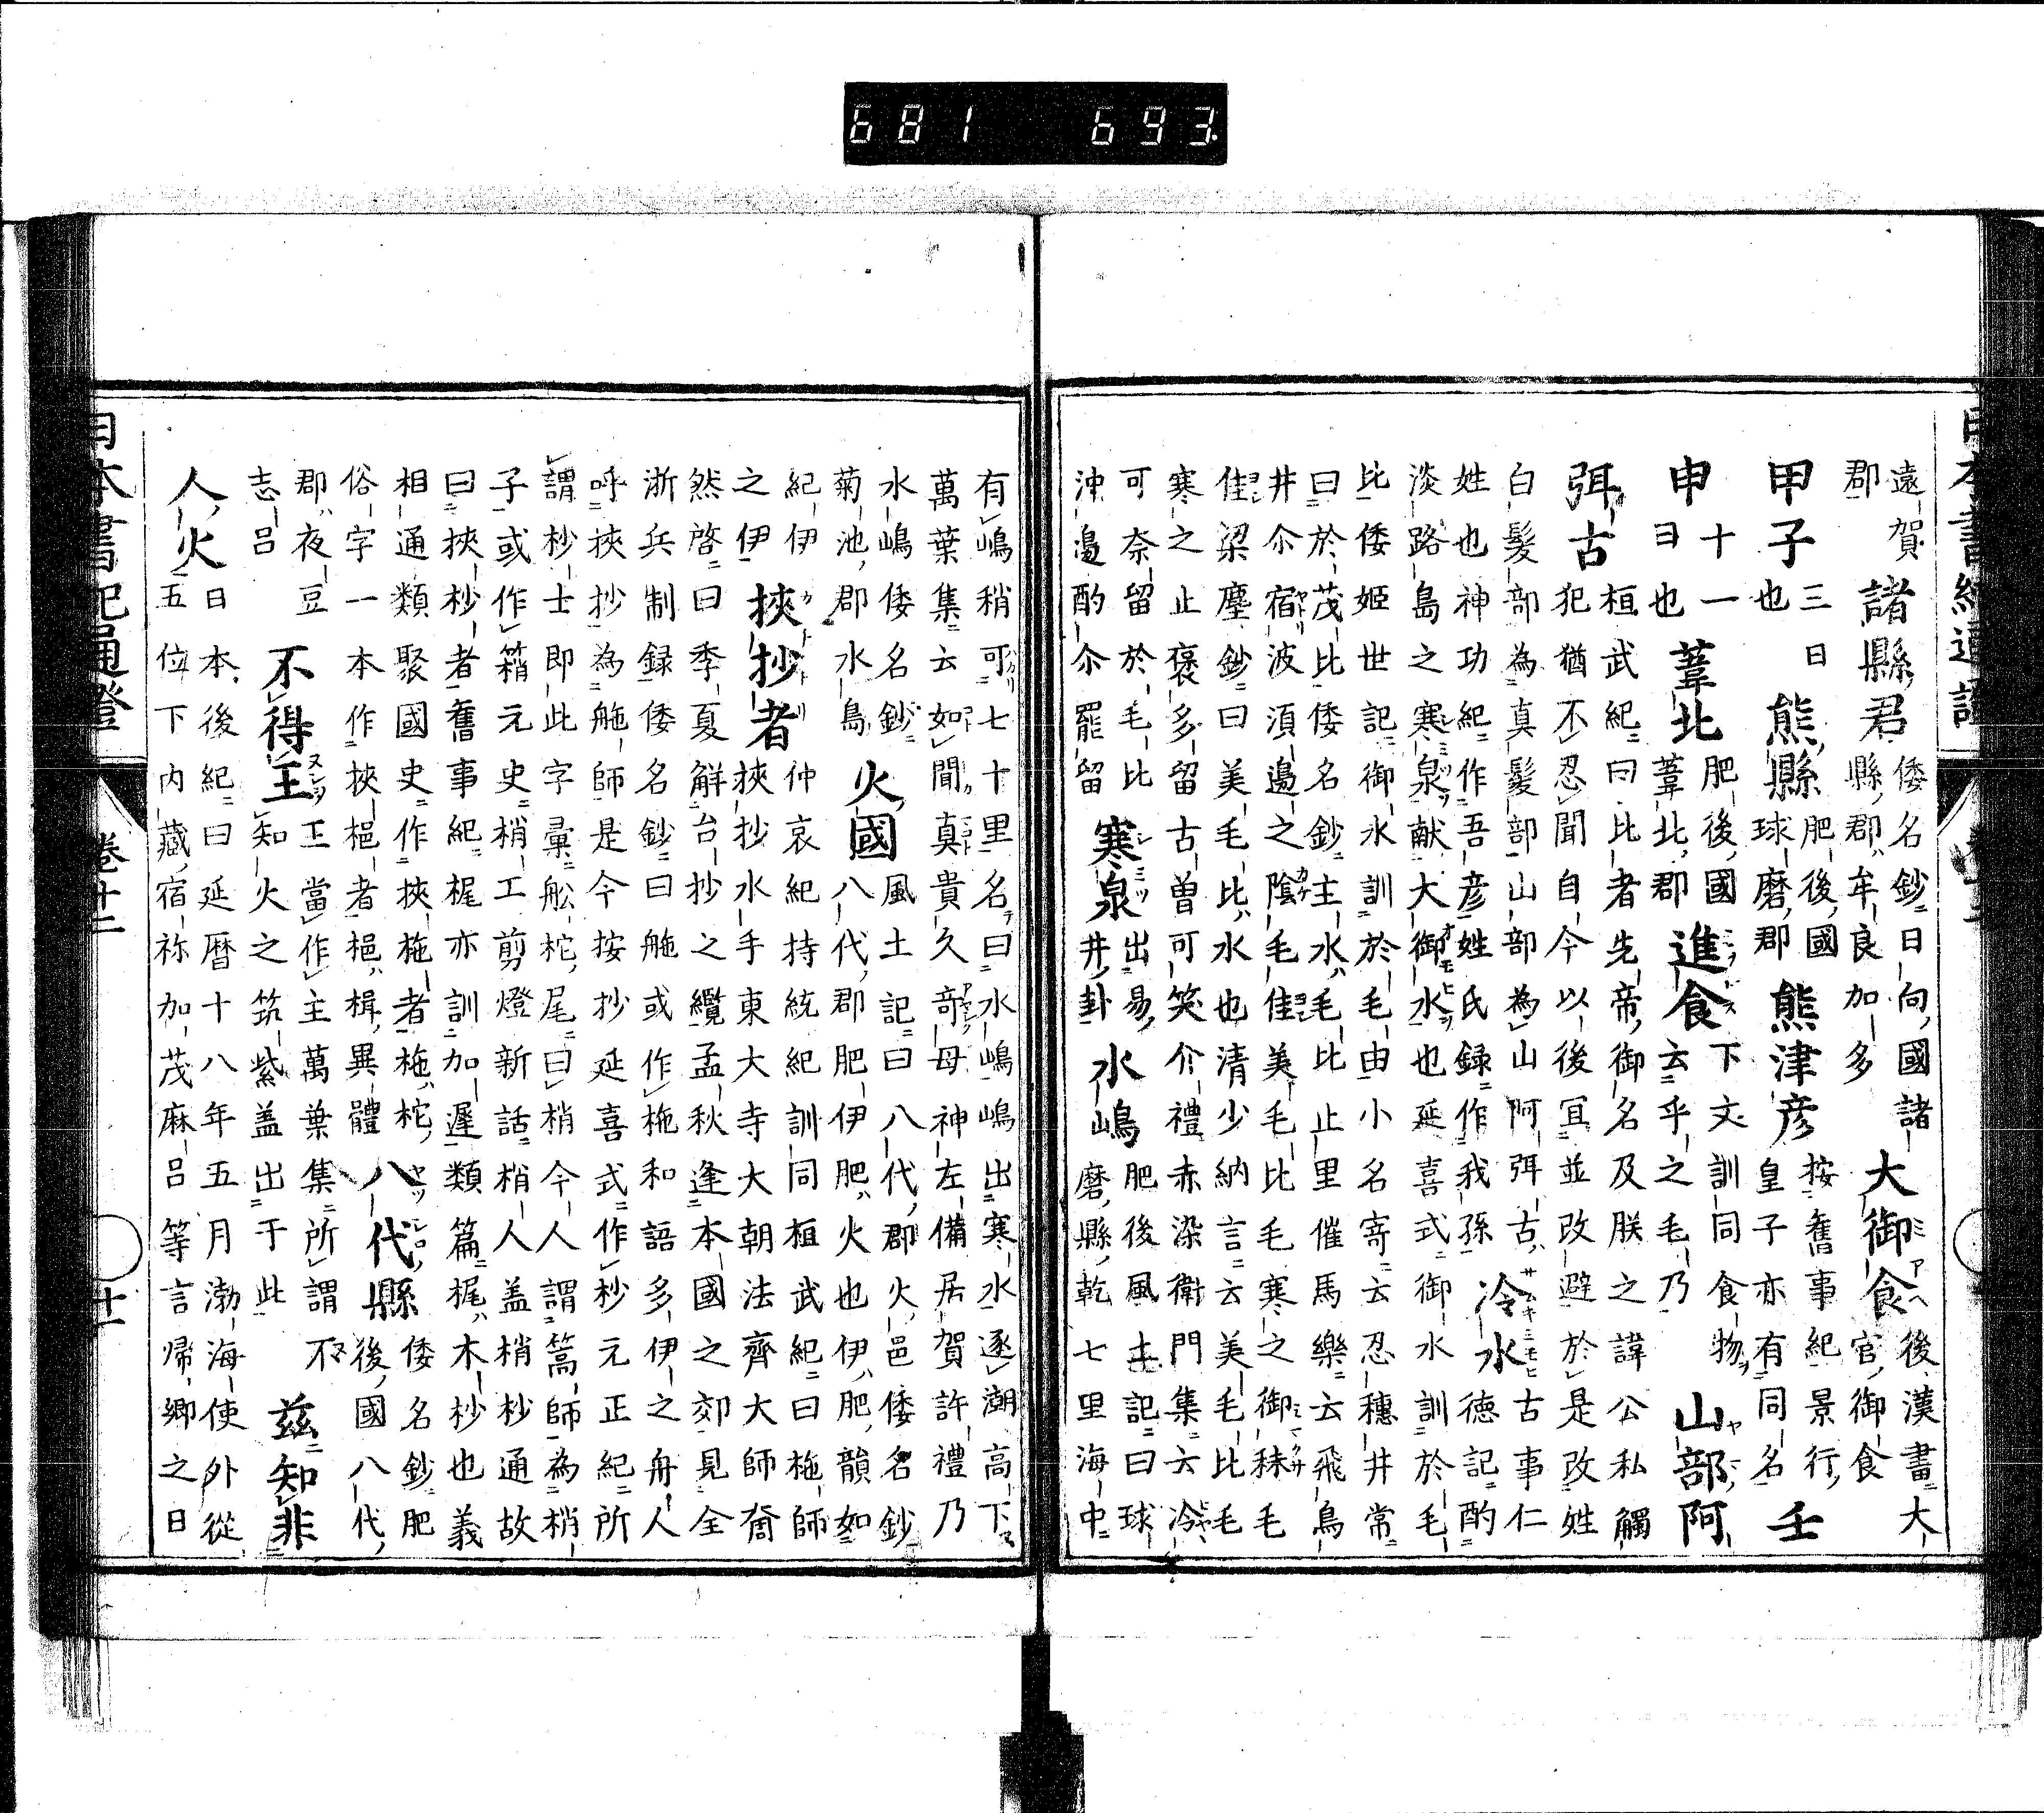 日本書紀通證
遠賀郡 諸縣君 倭名鈔曰向國諸縣郡牟良加多 大御食 後漢書大官御食
甲子 三日也 熊縣 肥後國球磨郡 熊津彦 按舊事紀景行皇子亦有同名 壬
申 十一ヨ也 葦北 肥後國葦北郡 進食 下文訓同食物云乎之毛乃 山部阿
弭古 桓武紀曰比者先帝御名及朕之諱公私觸犯猶不忍聞自今以後冝並改避於是改姓
白髮部為真髮部山部為山阿弭古姓也神功紀作吾彦姓氏録作我孫 冷水 古事仁徳記酌
淡路島之寒泉献大御水也延喜式御水訓於毛比倭姬世記御氷訓於毛由小名寄云忍穗井常
曰於茂比倭名鈔主水毛比止里催馬樂云飛鳥井尒宿波湏邉之陰毛佳美毛比毛寒之御秣毛
佳梁塵鈔曰美毛比水也清少納言云美毛比毛寒之止褒多留古曽可笑介禮赤染衛門集云冷
可奈留於毛比沖邉酌尒罷留 寒泉 出易井卦 水嶋 肥後風土記曰球磨縣乾七里海中
有嶋稍可七十里名曰水嶋嶋出寒水逐潮高下萬葉集云如聞真貴久竒母神左備居賀許禮乃
水嶋倭名鈔菊池郡水島 火國 風土記曰八代郡火邑倭名鈔八代郡肥伊肥火也伊肥韻如
紀伊之伊 挾抄者 仲哀紀持統紀訓同桓武紀曰柂師挾抄水手東大寺大朝法齊大師奝
然啓曰季夏解台抄之纜孟秋逢本國之郊見全浙兵制録倭名鈔曰舵或作柂和語多伊之舟人
呼挾抄為舵師是今按抄延喜式作杪元正紀所謂杪士即此字彙舩柁尾曰梢今人謂篙師為梢
子或作䈰元史梢工剪燈新話梢人盖梢杪通故曰挾杪者舊事紀梶亦訓加遲類篇梶木杪也義
相通類聚國史作挾柂者柂柁俗字一本作挾梍者梍楫異體 八代縣 倭名鈔肥後國八代
郡夜豆志呂 不得主 王當作主萬葉集所謂不知火之筑紫盖出于此 茲知非
人火 日本後紀曰延暦十八年五月渤海使外從五位下内藏宿祢加茂麻呂等言歸郷之日
日本書紀通證 卷十二 十一
681 693